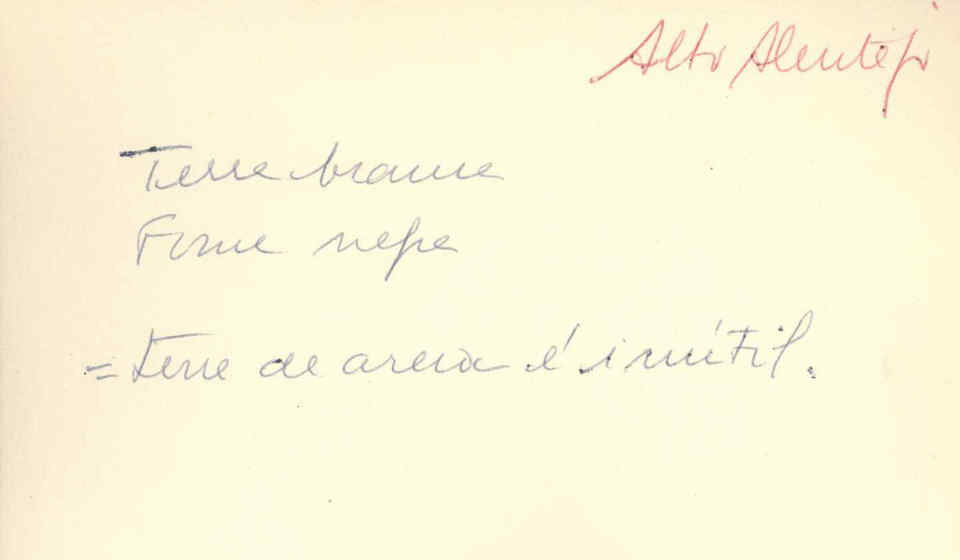 Alto Alentejo
Terra branca
Fome nega
= terra de areia é inútil.